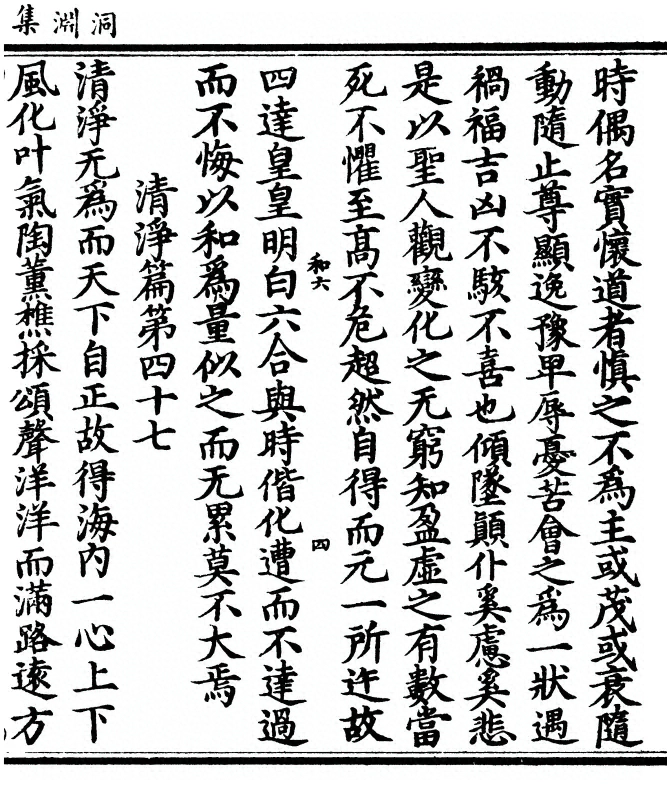 洞淵集
時偶名實懷道者慎之不為主或茂或衰隨
動隨止尊顯逸豫卑辱憂苦會之為一狀遇
禍福吉凶不駭不喜也傾墜顛仆奚慮奚悲
是以聖人觀變化之无窮知盈虛之有數當
死不懼至高不危超然自得而元一所迕故
和六
四
四達皇皇明白六合與時偕化遭而不達過
而不悔以和為量似之而无累莫不大焉
清淨篇第四十七
清淨无為而天下自正故得海內一心上下
風化叶氣陶薰樵採頌聲洋洋而滿路遠方